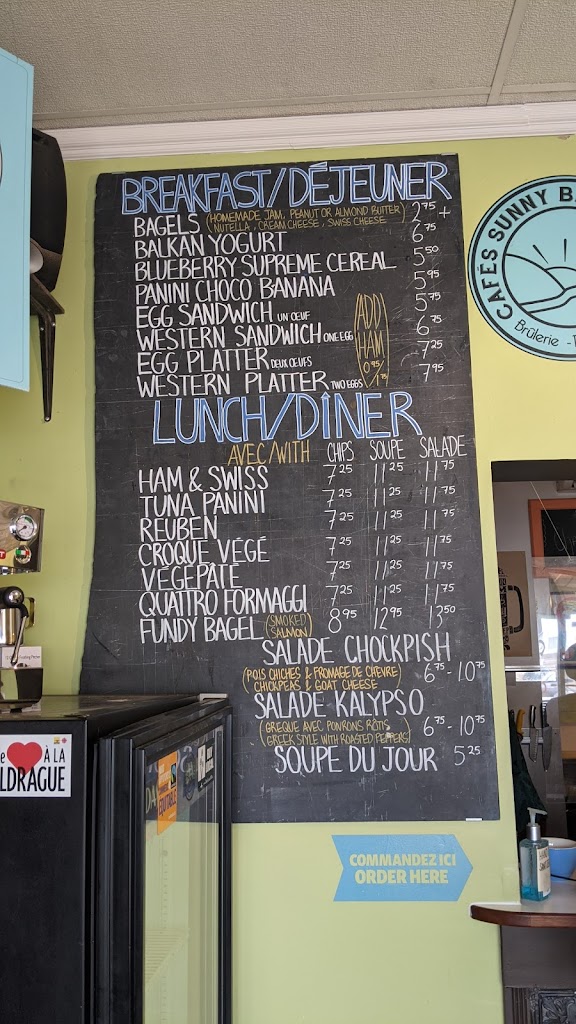 BREAKFAST/DÉJEUNER
BAGELS (HOMEMADE JAM, PEANUT OR ALMOND BUTTER) 2.75 +
NUTELLA, CREAM CHEESE, SWISS CHEESE
BALKAN YOGURT 6.75
BLUEBERRY SUPREME CEREAL 5.50
PANINI CHOCO BANANA 5.95
EGG SANDWICH UN OEUF 5.75
WESTERN SANDWICH ONE EGG 6.75
EGG PLATTER DEUX OEUFS 7.25
WESTERN PLATTER TWO EGGS 7.95
(ADD)
HAM!
0.95/1.75
LUNCH/DÎNER
AVEC/WITH CHIPS SOUPE SALADE
HAM & SWISS 7.25 11.25 11.75
TUNA PANINI 7.25 11.25 11.75
REUBEN 7.25 11.25 11.75
CROQUE VÉGÉ 7.25 11.25 11.75
VÉGÉPÂTÉ 7.25 11.25 11.75
QUATTRO FORMAGGI 7.25 11.25 11.75
FUNDY BAGEL (SMOKED SALMON) 8.95 12.95 13.50
SALADE CHOCKPISH
(POIS CHICHES & FROMAGE DE CHÈVRE) 6.75 - 10.75
CHICKPEAS & GOAT CHEESE
SALADE KALYPSO
(GREQUE AVEC POIVRONS RÔTIS 6.75 - 10.75
GREEK STYLE WITH ROASTED PEPPERS)
SOUPE DU JOUR 5.25
CAFÉS SUNNY B
Brûlerie
COMMANDEZ ICI
ORDER HERE
À LA
LDRAGUE